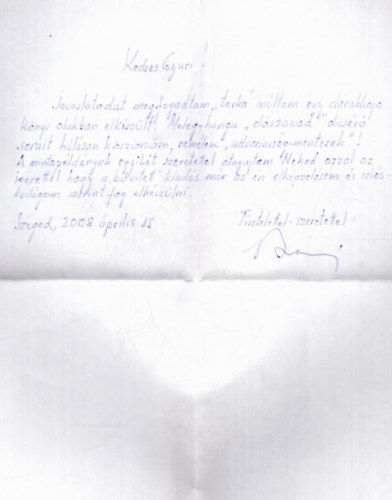 Kedves Gyuri!
Javaslatodat megfogadtam, "tarka" múltam egy darabkája
könyv alakban elkészült. Meleg-hangú "előszavad" dicsérő
sorait hálásan köszönöm, remélem "udvariasság-mentesek"!
A mintapéldányok egyikét szeretettel átnyújtom Neked azzal az
ígérettel hogy a bővített kiadás már az én elképzelésem és ízlés-
világom szerint fog elkészülni.
Szeged, 2008 április 15 Tisztelettel-szeretettel